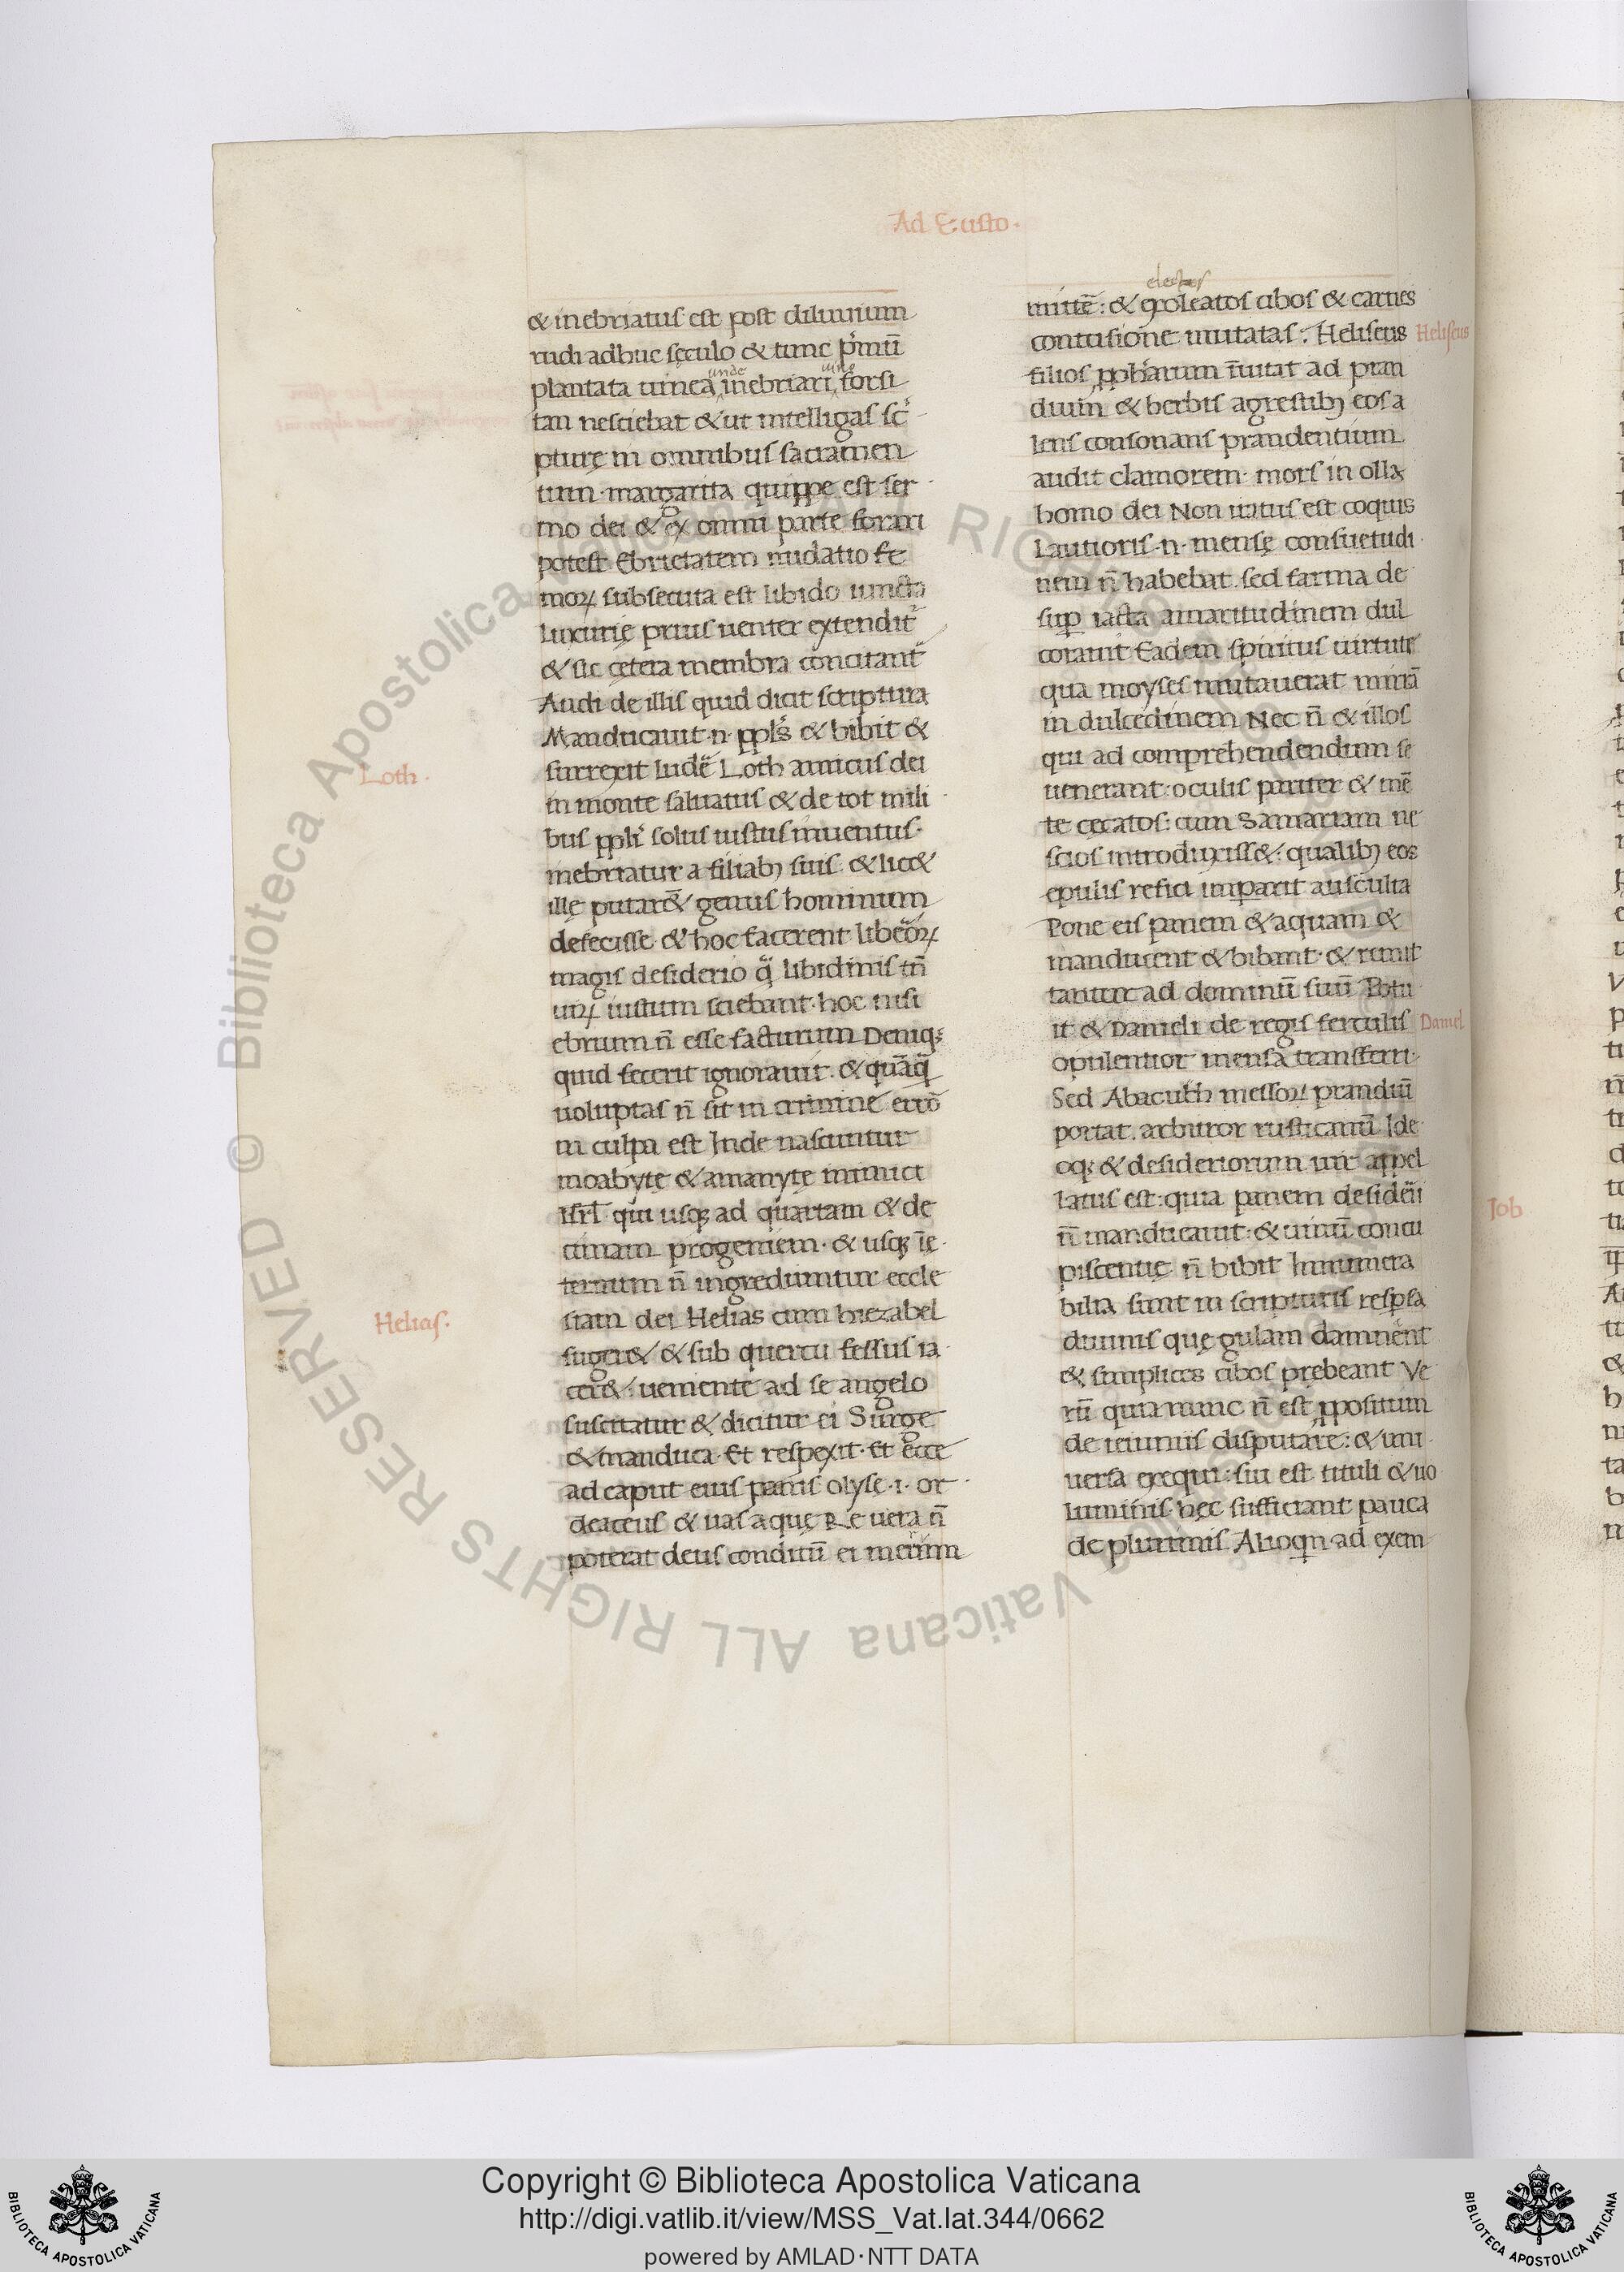 Ad Eusto·
& inebriatus est post diluuium
rudi adhuc sęculo & tunc p̓mū
plantata uinea unde inebriari uino forsi
tan nesciebat & ut intelligas sc̓
pturę in omnibus sacramen
tum· margarita quippe est ser
mo dei & ex omni parte forari
potest Ebrietatem nudatio fe
moꝝ subsecuta est libido iuncta
luxurię prius uenter extendit᷑
& sic cetera membra concitant᷑
Audi de illis quid dicit scriptura
Manducauit ·n· ppl̓s & bibit &
surrexit ludē Loth amicus dei
Loth·
in monte saluatus & de tot mili
bus ppl̓i solus iustus inuentus·
inebriatur a filiabꝫ suis· & lic&
ille putar& genus hominum
defecisse & hoc facerent libēoꝝ
magis desiderio q̄ libidinis tn̄
uiꝝ iustum sciebant· hoc nisi
ebrium n̄ esse facturum Deniqꝫ
quid fecerit ignorauit· & quāq̄
uoluptas n̄ sit in crimine erro᷑
in culpa est Inde nascuntur
moabytę & amanytę inimici
Isrl̄ qui usqꝫ ad quartam & de
cimam progeniem· & usqꝫ ī ę
ternum n̄ ingrediuntur eccle
siam dei Helias cum hiezabel
Helias·
fuger& & sub quercu fessus ia
cer&: ueniente ad se angelo
suscitatur & dicitur ei Surge
& manduca· Et respexit· Et ecce
ad caput eius panis olyre ·i· or
deaceus & uas aquę Re uera n̄
poterat deus conditū ei merum
mittē: & ex oleo electos cibos & carnes
contusione mutatas: Heliseus
Heliseus
filios ꝓphetarum īuitat ad pran
dium & herbis agrestibꝫ eos a
lens consonans prandentium
audit clamorem· mors in olla
homo dei Non iratus est coquis
Lautioris ·n· mensę consuetudi
nem n̄ habebat· sed farina de
suꝑ iacta amaritudinem dul
corauit Eadem spiritus uirtute
qua moyses mutauerat mirrā
in dulcedinem Nec n̄ & illos
qui ad comprehendendum se
uenerant: oculis pariter & mē
te cęcatos: cum Samariam ne
scios introduxiss&: qualibꝫ eos
epulis refici imparit ausculta
Pone eis panem & aquam &
manducent & bibant· & remit
tantur ad dominū suū Potu
it & Danieli de regis ferculis
Daniel
opulentior mensa transferri·
Sed Abacuth messoꝝ prandiū
portat· arbitror rusticanū Ide
oqꝫ & desideriorum uir appel
latus est: quia panem desiderii
n̄ manducauit: & uinū concu
piscentię n̄ bibit Innumera
bilia sunt in scripturis respōsa
diuinis quę gulam damnent
& simplices cibos prębeant Ve
rū quia nunc n̄ est ꝓpositum
de ieiuniis disputare: & uni
uersa exequi: sui est tituli & uo
luminis· hęc sufficiant pauca
de plurimis Alioqin ad exem
Job
Copyright © Biblioteca Apostolica Vaticana
http://digi.vatlib.it/view/MSS_Vat.lat.344/0662
powered by AMLAD·NTT DATA
© Biblioteca Apostolica Vaticana ALL RIGHTS RESERVED
BIBLIOTECA APOSTOLICA VATICANA
BIBLIOTECA APOSTOLICA VATICANA